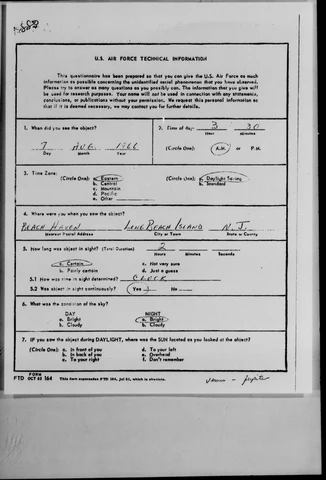 U.S. AIR FORCE TECHNICAL INFORMATION
This questionnaire has been prepared so that you can give the U.S. Air Force as much
information as possible concerning the unidentified aerial phenomenon that you have observed.
Please try to answer as many questions as you possibly can. The information that you give will
be used for research purposes. Your name will not be used in connection with any statements,
conclusions, or publications without your permission. We request this personal information so
that if it is deemed necessary, we may contact you for further details.
1. When did you see the object?
7 AUG. 1966
Day Month Year
2. Time of day: 3 30
Hour Minutes
(Circle One): A.M. or P.M.
3. Time Zone:
(Circle One): a. Eastern
b. Central
c. Mountain
d. Pacific
e. Other
(Circle One): a. Daylight Saving
b. Standard
4. Where were you when you saw the object?
BEACH HAVEN LONG BEACH ISLAND N.J.
Nearest Postal Address City or Town State or County
5. How long was object in sight? (Total Duration) 2
Hours Minutes Seconds
a. Certain c. Not very sure
b. Fairly certain d. Just a guess
5.1 How was time in sight determined? CLOCK
5.2 Was object in sight continuously? Yes No
6. What was the condition of the sky?
DAY NIGHT
a. Bright a. Bright
b. Cloudy b. Cloudy
7. IF you saw the object during DAYLIGHT, where was the SUN located as you looked at the object?
(Circle One): a. In front of you d. To your left
b. In back of you e. Overhead
c. To your right f. Don't remember
FORM
FTD OCT 62 164 This form supersedes FTD 164, Jul 61, which is obsolete.
- Jupiter